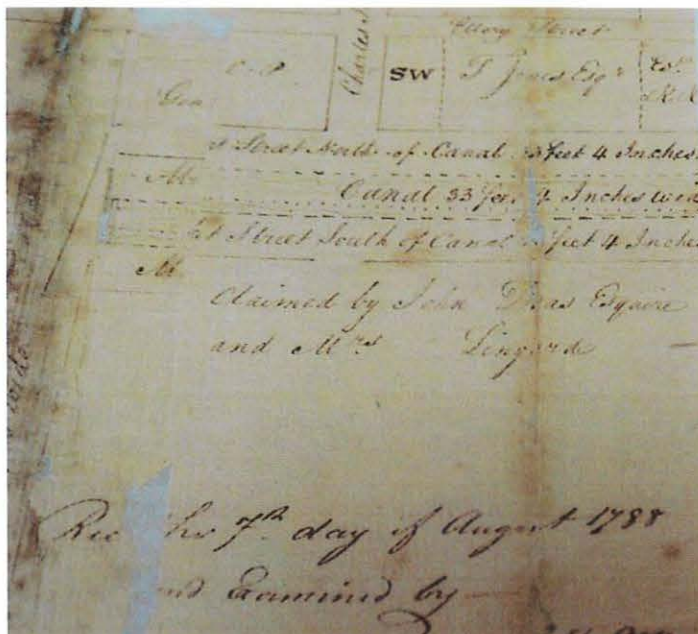 Ellery Street
Charles
SW
T Jones Esqr
Est
Street North of Canal 33 feet 4 Inches
Canal 33 feet 4 Inches wide
Street South of Canal feet 4 Inches
Claimed by John Deas Esquire
and Mrs Lingard
Rec 7th day of August 1788
and Examined by